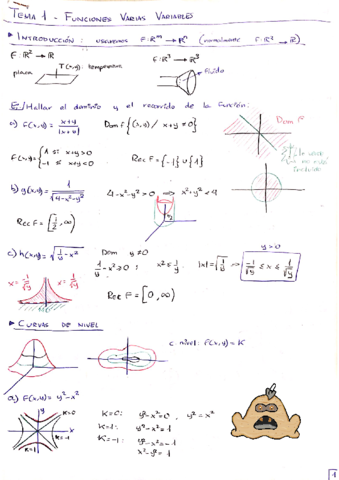 TEMA 1 - FUNCIONES VARIAS VARIABLES
▸ INTRODUCCIÓN: usaremos F: ℝᵐ → ℝⁿ (normalmente F: ℝ² → ℝ)
F: ℝ² → ℝ
F: ℝ³ → ℝ³
T(x,y): temperatura
placa
fluido
Ej/Hallar el dominio y el recorrido de la función:
a) F(x,y) = x+y / |x+y|
Dom F {(x,y) / x+y ≠ 0}
Dom F
F(x,y) = { 1 si x+y>0
-1 si x+y<0
Rec F = {-1} ∪ {1}
b) g(x,y) = 1/√(4-x²-y²)
4-x²-y² > 0 ⟹ x²+y² < 4
Rec F = [1/2, ∞)
c) h(x,y) = √(1/y - x²)
Dom y ≠ 0
y>0
1/y - x² ≥ 0 ; x² ≤ 1/y
|x| = √(1/y) ⟹ -1/√y ≤ x ≤ 1/√y
x = -1/√y
x = 1/√y
Rec F = [0, ∞)
▸ CURVAS DE NIVEL
c. nivel: F(x,y) = K
a) F(x,y) = y² - x²
K=0: y²-x²=0, y²=x²
K=1: y²-x²=1
K=-1: y²-x²=-1
x²-y²=1
K=0
K=-1
K=1
x
y
1